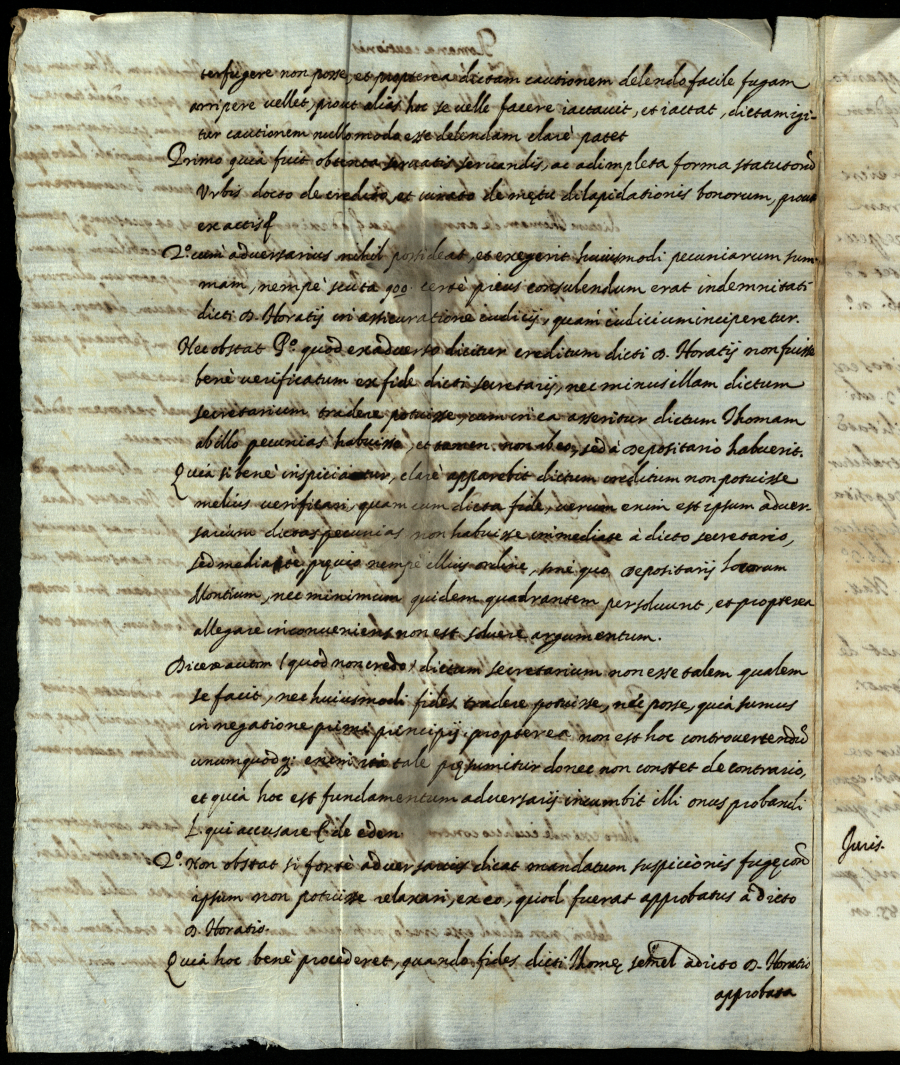 terfugere non posse, et propterea dictam cautionem delendo facile fugam
arripere vellet, prout alias hoc se velle facere iactavit, et iactat, dictam igi-
tur cautionem nullo modo esse delendam clarè patet
Primo quia fuit obtenta servatis servandis, ac adimpleta forma statutorũ
Urbis docto de credito, et iurato de metu dilapidationis bonorum, prout
ex actis
2.º cum adversarius nihil possideat, et exegerit huiusmodi pecuniarum sum-
mam, nempè scuta 900. certè prius consulendum erat indemnitati
dicti D. Horatij in assicuratione iudicij, quam iudicium inciperetur.
Nec obstat P.º quod ex adverso dicitur creditum dicti D. Horatij non fuisse
benè verificatum ex fide dicti secretarij, nec minus illam dictum
secretarium tradere potuisse, cum in ea asseritur dictum Thomam
ab illo pecunias habuisse, et tamen non ab eo, sed à Depositario habuerit.
Quia si benè inspiciatur, clarè apparebit dictum creditum non potuisse
melius verificari, quam cum dicta fide, verum enim est ipsum adver-
sarium dictas pecunias non habuisse immediate à dicto secretario,
sed mediatè nempè illius ordine, sine quo Depositarij locorum
Montium, nec minimum quidem quadrantem persoluunt, et propterea
allegare inconveniens non est solvere argumentum.
Dicere autem (quod non credo) dictum secretarium non esse talem qualem
se facit, nec huiusmodi fides tradere potuisse, nec posse, quia sumus
in negatione primi principij, propterea non est hoc controvertendũ
unumquodq; enim tale pręsumitur donec non constet de contrario,
et quia hoc est fundamentum adversarij incumbit illi onus probandi
L. qui accusare C. de eden.
2.º Non obstat si fortè adversarius dicat mandatum suspicionis fugę con
ipsum non potuisse relaxari, ex eo, quod fuerat approbatus à dicto
D. Horatio.
Quia hoc benè procederet, quando fides dicti Thomę semel à dicto D. Horatio
approbata
Juris.